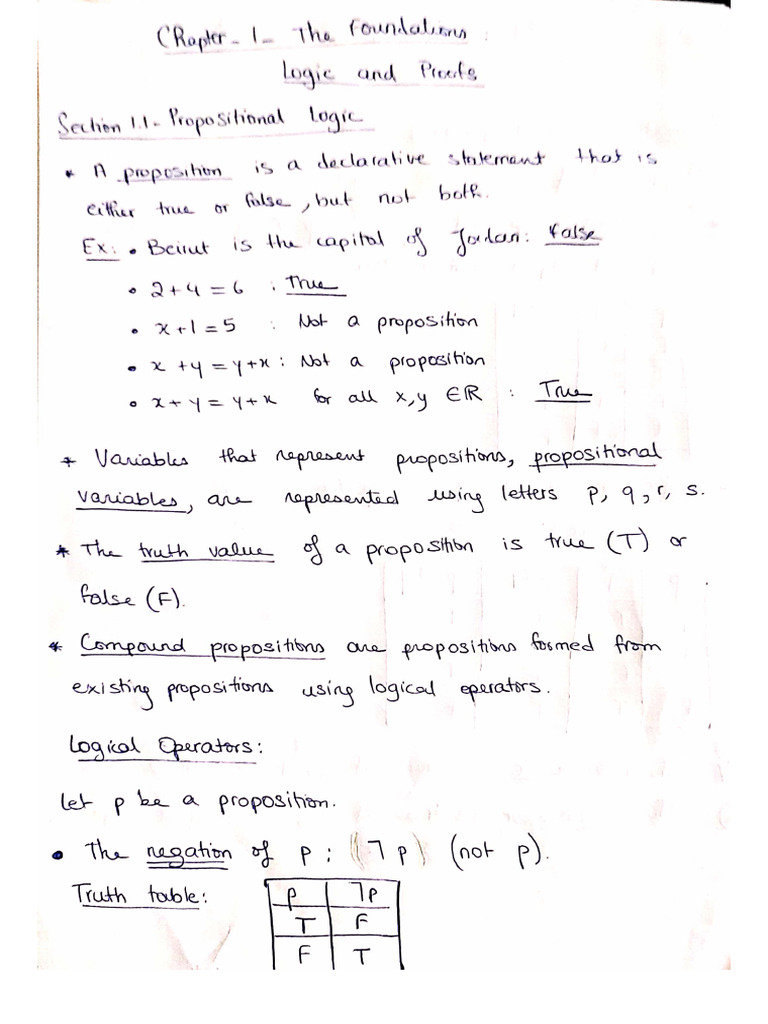 Chapter - 1 - The Foundations:
Logic and Proofs
Section 1.1 - Propositional Logic
* A proposition is a declarative statement that is
either true or false, but not both.
Ex: • Beirut is the capital of Jordan: False
• 2+4=6 : True
• x+1=5 : Not a proposition
• x+y=y+x : Not a proposition
• x+y=y+x for all x,y ∈ ℝ : True
* Variables that represent propositions, propositional
variables, are represented using letters p, q, r, s.
* The truth value of a proposition is true (T) or
false (F).
* Compound propositions are propositions formed from
existing propositions using logical operators.
Logical Operators:
Let p be a proposition.
• The negation of p : (¬p) (not p).
Truth table:
p ¬p
T F
F T